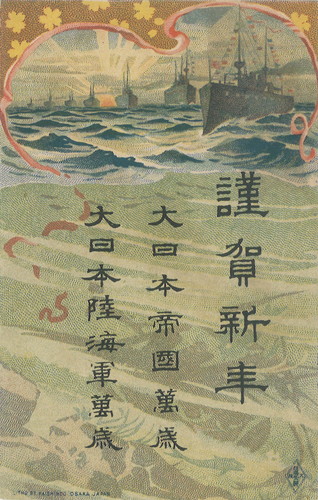 謹賀新年
大日本帝國萬歳
大日本陸海軍萬歳
OSAKA JAPAN